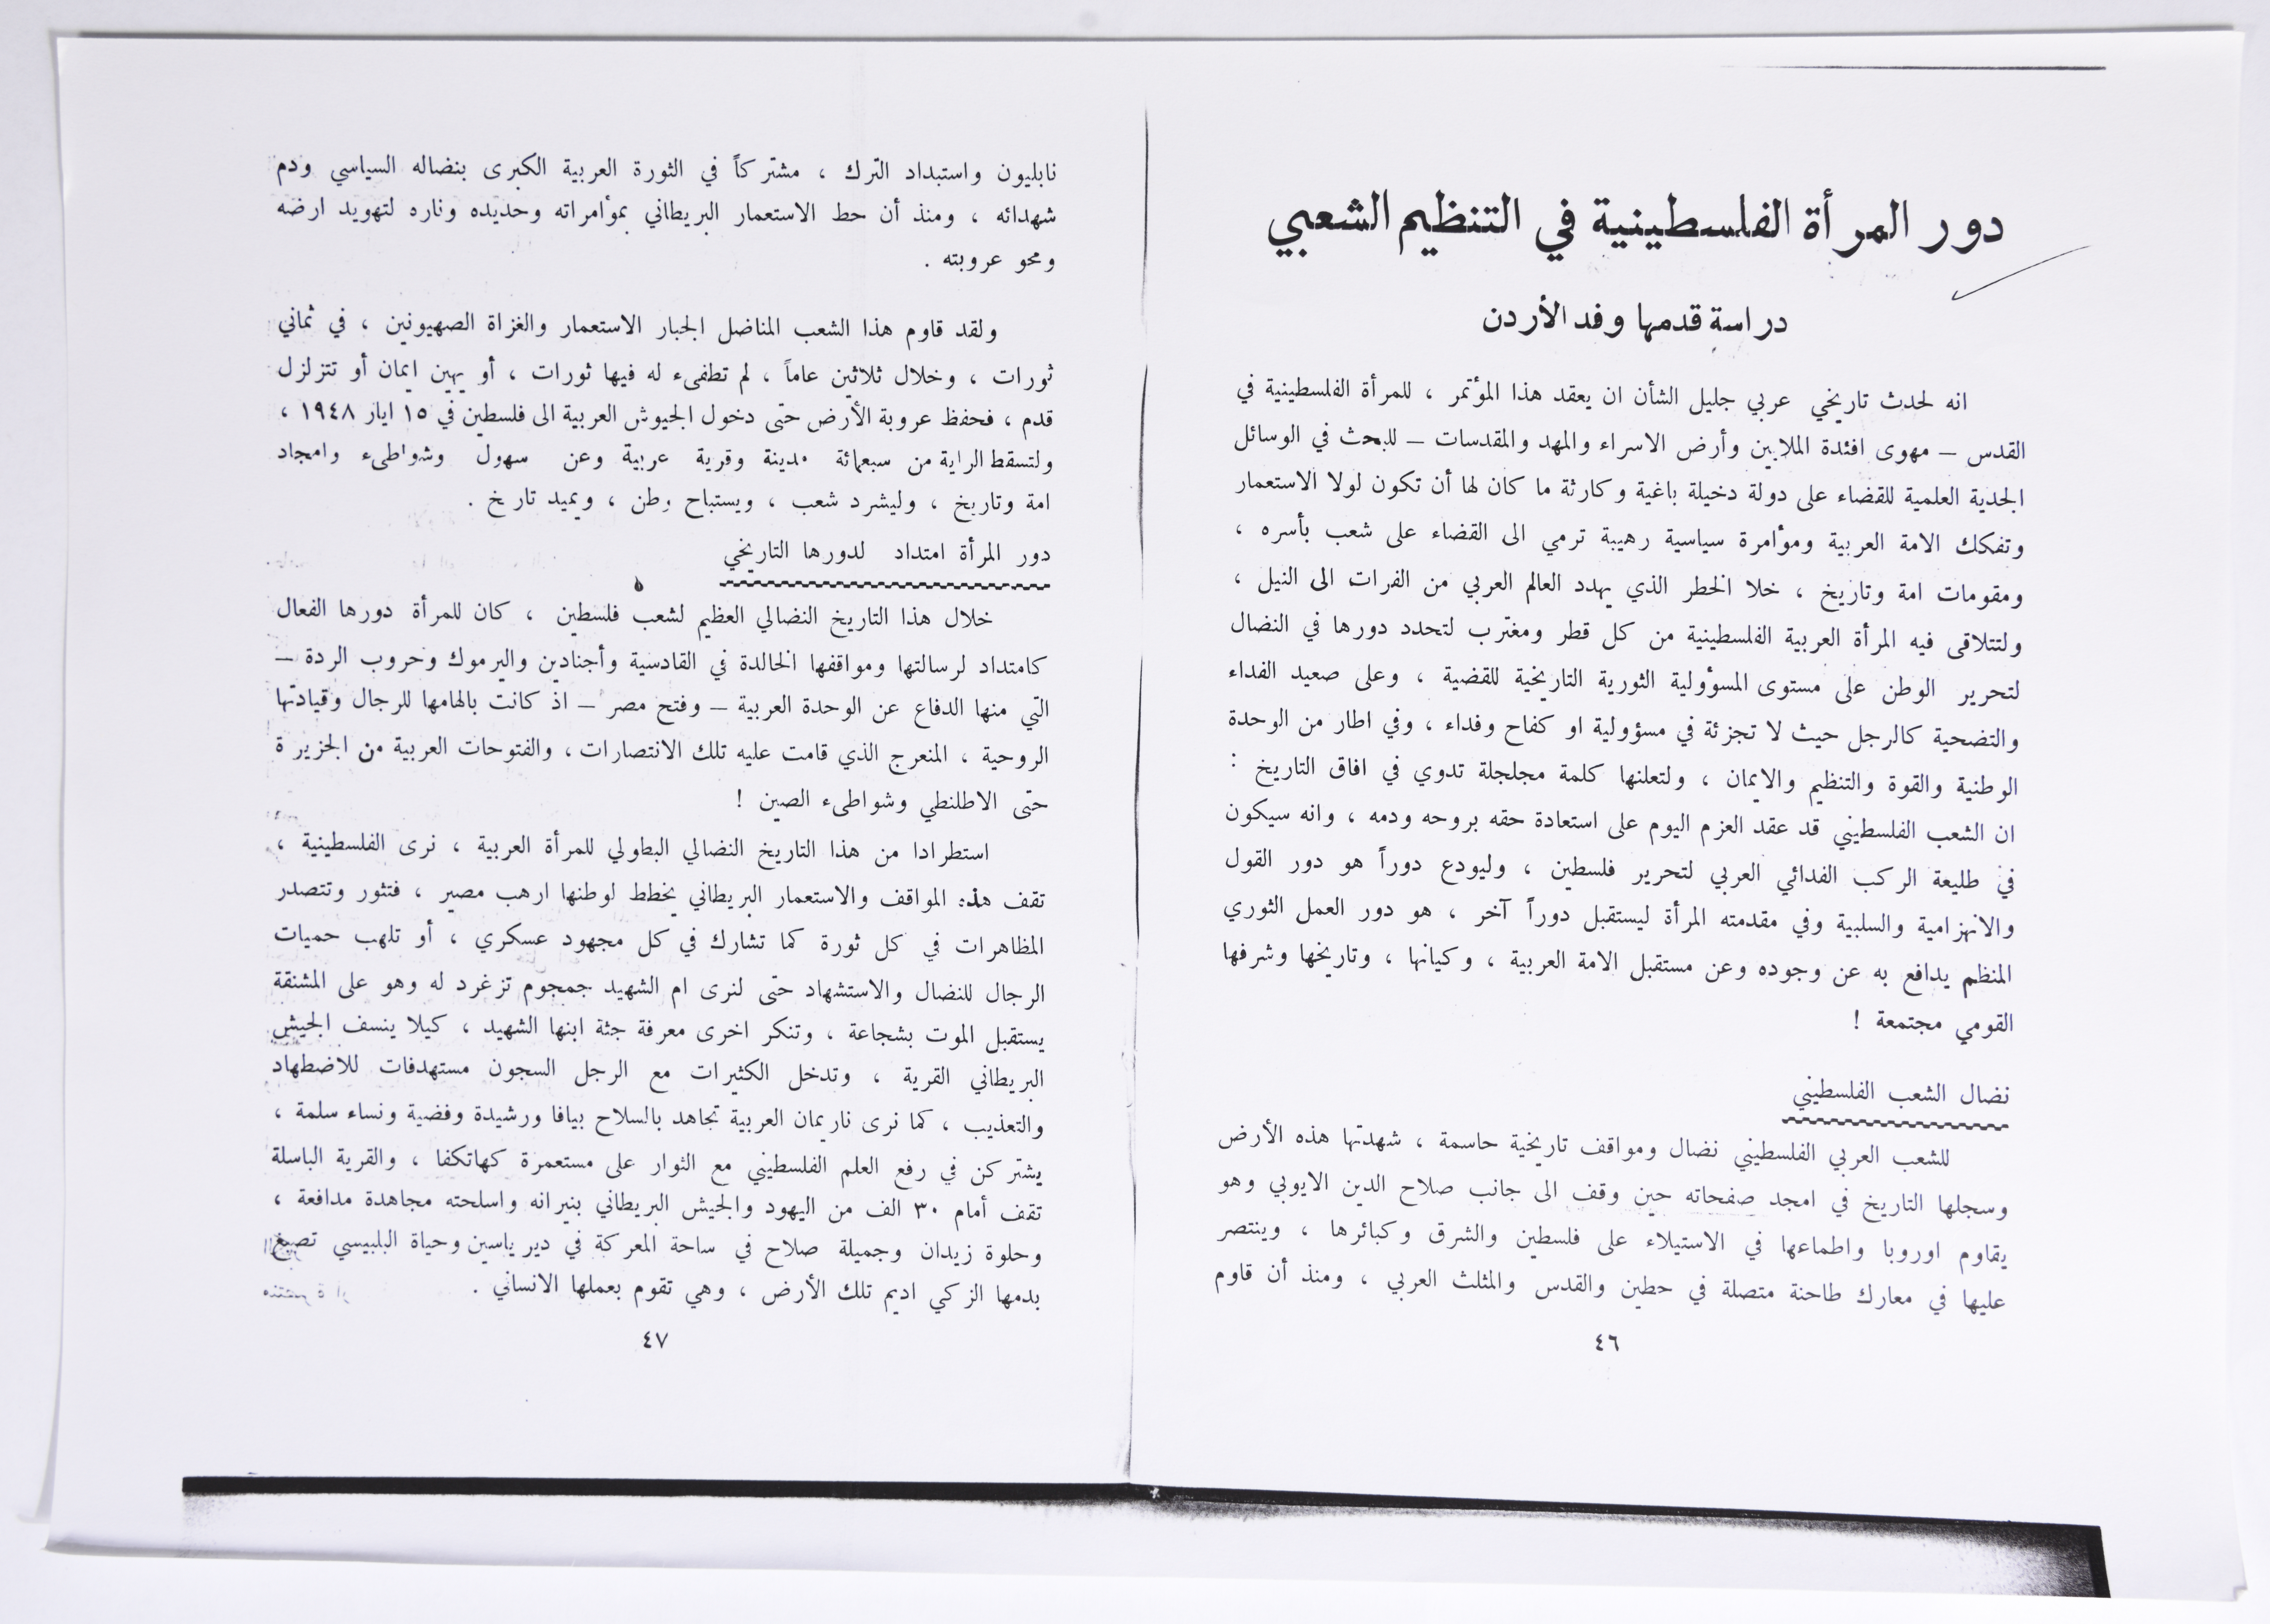 دور المرأة الفلسطينية في التنظيم الشعبي
دراسة قدمها وفد الأردن
انه لحدث تاريخي عربي جليل الشأن ان يعقد هذا المؤتمر ، للمرأة الفلسطينية في
القدس – مهوى افئدة الملايين وأرض الاسراء والمهد والمقدسات – للبحث في الوسائل
الجدية العلمية للقضاء على دولة دخيلة باغية وكارثة ما كان لها أن تكون لولا الاستعمار
وتفكك الامة العربية ومؤامرة سياسية رهيبة ترمي الى القضاء على شعب بأسره ،
ومقومات امة وتاريخ ، خلا الخطر الذي يهدد العالم العربي من الفرات الى النيل ،
ولتتلاقى فيه المرأة العربية الفلسطينية من كل قطر ومغترب لتحدد دورها في النضال
لتحرير الوطن على مستوى المسؤولية الثورية التاريخية للقضية ، وعلى صعيد الفداء
والتضحية كالرجل حيث لا تجزئة في مسؤولية او كفاح وفداء ، وفي اطار من الوحدة
الوطنية والقوة والتنظيم والايمان ، ولتعلنها كلمة مجلجلة تدوي في افاق التاريخ :
ان الشعب الفلسطيني قد عقد العزم اليوم على استعادة حقه بروحه ودمه ، وانه سيكون
في طليعة الركب الفدائي العربي لتحرير فلسطين ، وليودع دوراً هو دور القول
والانهزامية والسلبية وفي مقدمته المرأة ليستقبل دوراً آخر ، هو دور العمل الثوري
المنظم يدافع به عن وجوده وعن مستقبل الامة العربية ، وكيانها ، وتاريخها وشرفها
القومي مجتمعة !
نضال الشعب الفلسطيني
للشعب العربي الفلسطيني نضال ومواقف تاريخية حاسمة ، شهدتها هذه الأرض
وسجلها التاريخ في امجد صفحاته حين وقف الى جانب صلاح الدين الايوبي وهو
يقاوم اوروبا واطماعها في الاستيلاء على فلسطين والشرق وكبائرها ، وينتصر
عليها في معارك طاحنة متصلة في حطين والقدس والمثلث العربي ، ومنذ أن قاوم
٤٦
نابليون واستبداد الترك ، مشتركاً في الثورة العربية الكبرى بنضاله السياسي ودم
شهدائه ، ومنذ أن حط الاستعمار البريطاني بمؤامراته وحديده وناره لتهويد ارضه
ومحو عروبته .
ولقد قاوم هذا الشعب المناضل الجبار الاستعمار والغزاة الصهيونين ، في ثماني
ثورات ، وخلال ثلاثين عاماً ، لم تطفىء له فيها ثورات ، أو يهين ايمان أو تتزلزل
قدم ، فحفظ عروبة الأرض حتى دخول الجيوش العربية الى فلسطين في ١٥ ايار ١٩٤٨ ،
ولتسقط الراية من سبعمائة مدينة وقرية عربية وعن سهول وشواطىء وامجاد
امة وتاريخ ، وليشرد شعب ، ويستباح وطن ، ويميد تاريخ .
دور المرأة امتداد لدورها التاريخي
خلال هذا التاريخ النضالي العظيم لشعب فلسطين ، كان للمرأة دورها الفعال
كامتداد لرسالتها ومواقفها الخالدة في القادسية وأجنادين واليرموك وحروب الردة –
التي منها الدفاع عن الوحدة العربية – وفتح مصر – اذ كانت بالهامها للرجال وقيادتها
الروحية ، المنعرج الذي قامت عليه تلك الانتصارات ، والفتوحات العربية من الجزيرة
حتى الاطلنطي وشواطىء الصين !
استطرادا من هذا التاريخ النضالي البطولي للمرأة العربية ، نرى الفلسطينية ،
تقف هذه المواقف والاستعمار البريطاني يخطط لوطنها ارهب مصير ، فتثور وتتصدر
المظاهرات في كل ثورة كما تشارك في كل مجهود عسكري ، أو تلهب حميات
الرجال للنضال والاستشهاد حتى لنرى ام الشهيد جمجوم تزغرد له وهو على المشنقة
يستقبل الموت بشجاعة ، وتنكر اخرى معرفة جثة ابنها الشهيد ، كيلا ينسف الجيش
البريطاني القرية ، وتدخل الكثيرات مع الرجل السجون مستهدفات للاضطهاد
والتعذيب ، كما نرى ناريمان العربية تجاهد بالسلاح بيافا ورشيدة وفضية ونساء سلمة ،
يشتركن في رفع العلم الفلسطيني مع الثوار على مستعمرة كهاتكفا ، والقرية الباسلة
تقف أمام ٣٠ الف من اليهود والجيش البريطاني بنيرانه واسلحته مجاهدة مدافعة ،
وحلوة زيدان وجميلة صلاح في ساحة المعركة في دير ياسين وحياة البلبيسي تصبغ
بدمها الزكي اديم تلك الأرض ، وهي تقوم بعملها الانساني .
٤٧